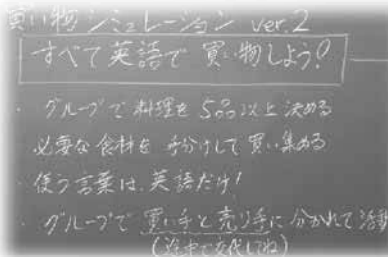 買い物シミュレーション ver.2
すべて英語で買い物しよう!
・グループで料理を5品以上決める
・必要な食料を手分けして買い集める
・使う言葉は、英語だけ!
・グループで買い手と売り手に分かれて活動
(途中で交代してね)